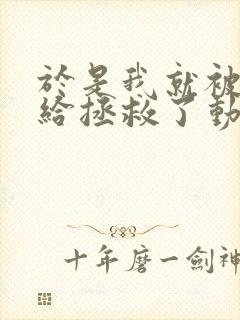 於是我就被
給拯救了動
十年磨一劍神